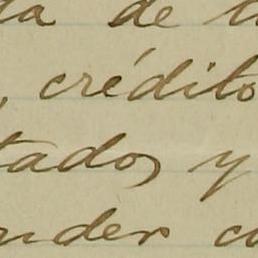 da de
, crédito
tados y
nder co